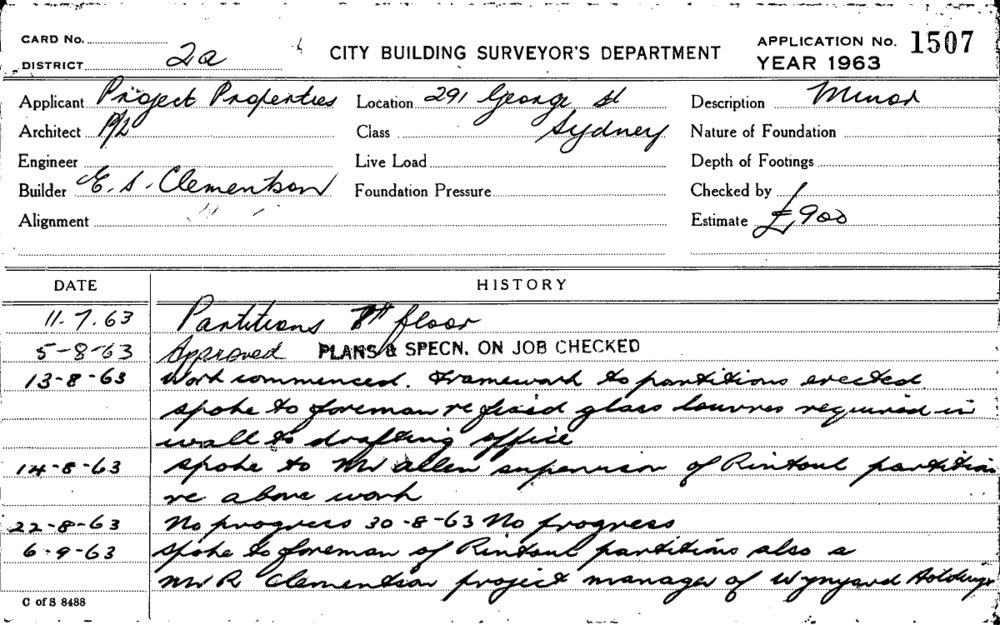 CARD No.
DISTRICT 2a
CITY BUILDING SURVEYOR'S DEPARTMENT
APPLICATION No. 1507
YEAR 1963
Applicant Project Properties
Location 291 George St
Description Minor
Architect P/L
Class Sydney
Nature of Foundation
Engineer
Live Load
Depth of Footings
Builder E. S. Clementson
Foundation Pressure
Checked by
Alignment
Estimate £900
DATE HISTORY
11.7.63 Partitions 8th floor
5-8-63 Approved PLANS & SPECN. ON JOB CHECKED
13-8-63 Work commenced. Framework to partitions erected
spoke to foreman re fixed glass louvres required in
wall to drafting office
14-8-63 spoke to Mr Allen supervisor of Rintoul partitions
re above work
22-8-63 No progress 30-8-63 No progress
6-9-63 spoke to foreman of Rintoul partitions also a
Mr R Clementson project manager of Wynyard Holdings
C of S 8488